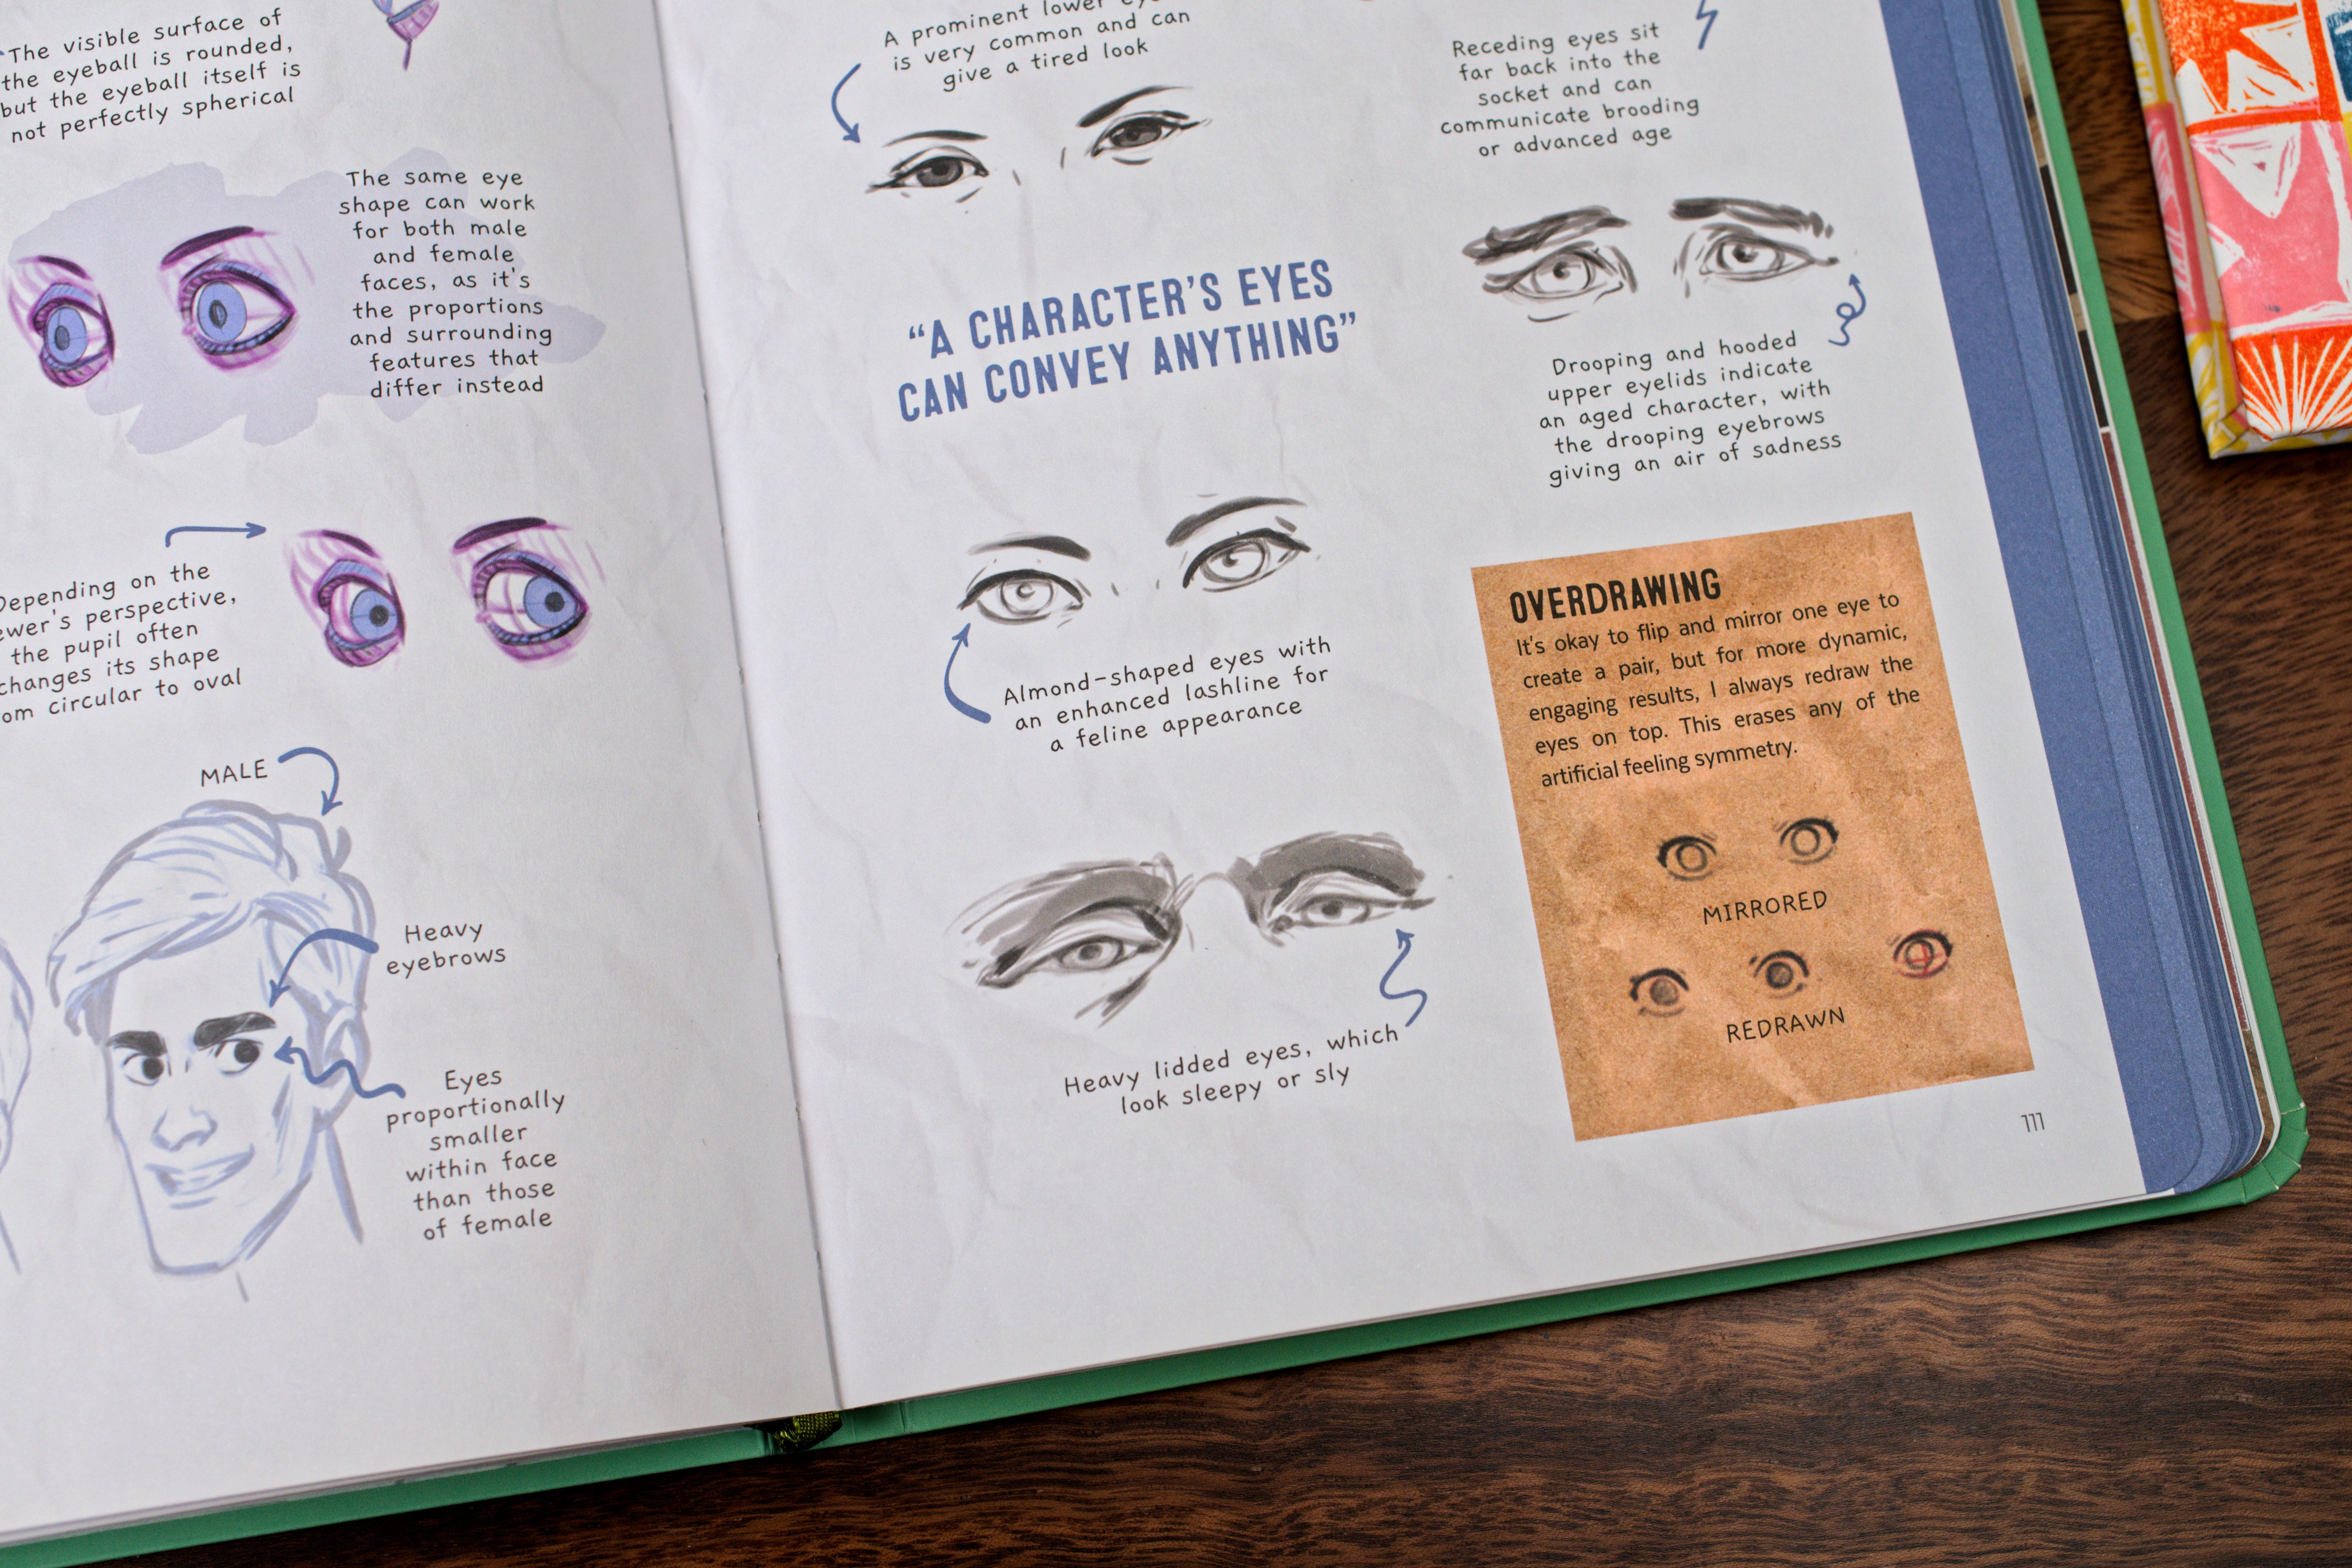 The visible surface of
the eyeball is rounded,
but the eyeball itself is
not perfectly spherical
The same eye
shape can work
for both male
and female
faces, as it's
the proportions
and surrounding
features that
differ instead
Depending on the
ewer's perspective,
the pupil often
changes its shape
om circular to oval
MALE
Heavy
eyebrows
Eyes
proportionally
smaller
within face
than those
of female
A prominent lower
is very common and can
give a tired look
"A CHARACTER'S EYES
CAN CONVEY ANYTHING"
Almond-shaped eyes with
an enhanced lashline for
a feline appearance
Heavy lidded eyes, which
look sleepy or sly
Receding eyes sit
far back into the
socket and can
communicate brooding
or advanced age
Drooping and hooded
upper eyelids indicate
an aged character, with
the drooping eyebrows
giving an air of sadness
OVERDRAWING
It's okay to flip and mirror one eye to
create a pair, but for more dynamic,
engaging results, I always redraw the
eyes on top. This erases any of the
artificial feeling symmetry.
MIRRORED
REDRAWN
111